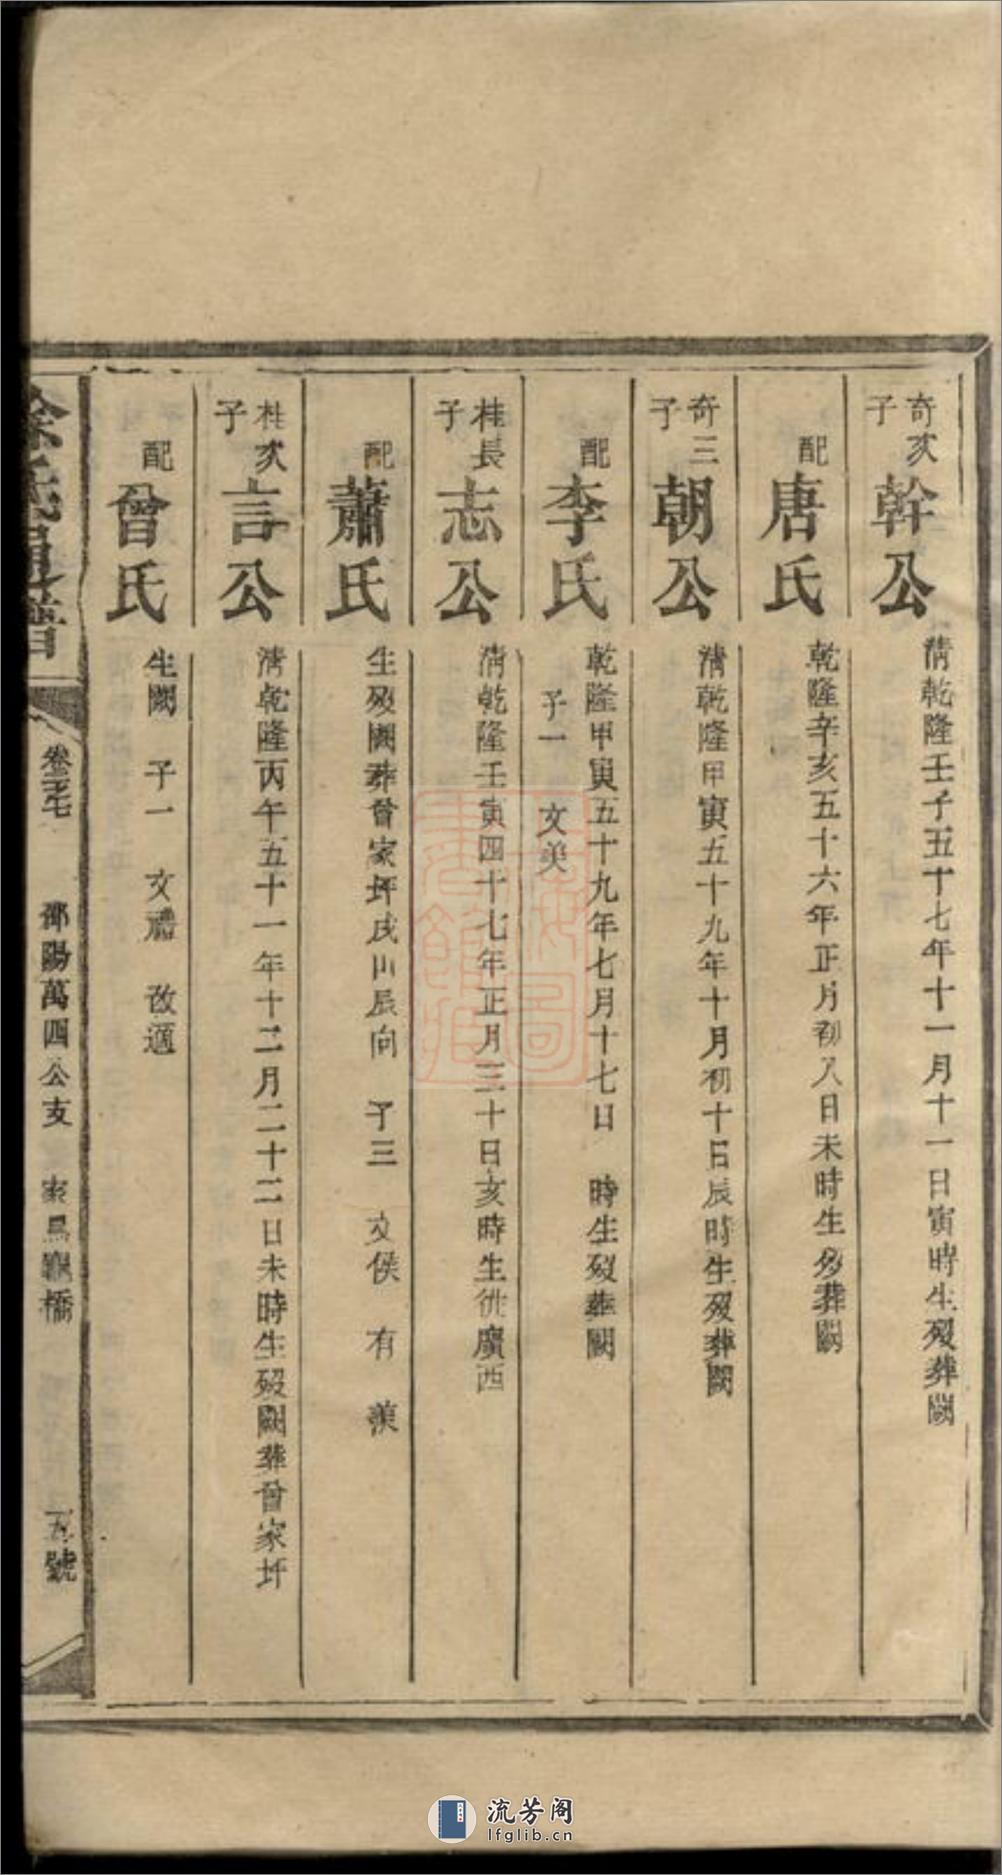 奇次子 幹公 清乾隆壬子五十七年十一月十一日寅時生歿葬闕
配 唐氏 乾隆辛亥五十六年正月初八日未時生歿葬闕
奇三子 朝公 清乾隆甲寅五十九年十月初十日辰時生歿葬闕
配 李氏 乾隆甲寅五十九年七月十七日 時生歿葬闕
子一 文美
桂長子 志公 清乾隆壬寅四十七年正月三十日亥時生徙廣西
配 蕭氏 生歿闕葬曾家坪戌山辰向 子三 文侯 有 美
桂次子 言公 清乾隆丙午五十一年十二月二十二日未時生歿闕葬曾家圩
配 曾氏 生闕 子一 文禮 改適
徐氏通譜
卷三七
邵陽萬四公支
橋
五號
流芳阁
lfglib.cn